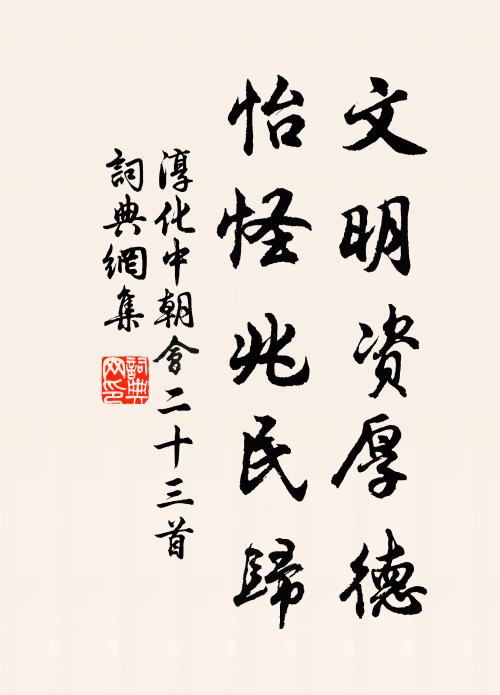 文明资厚德
怡怪兆民歸
淳化中朝會二十三首
詞典網集
詞典網印